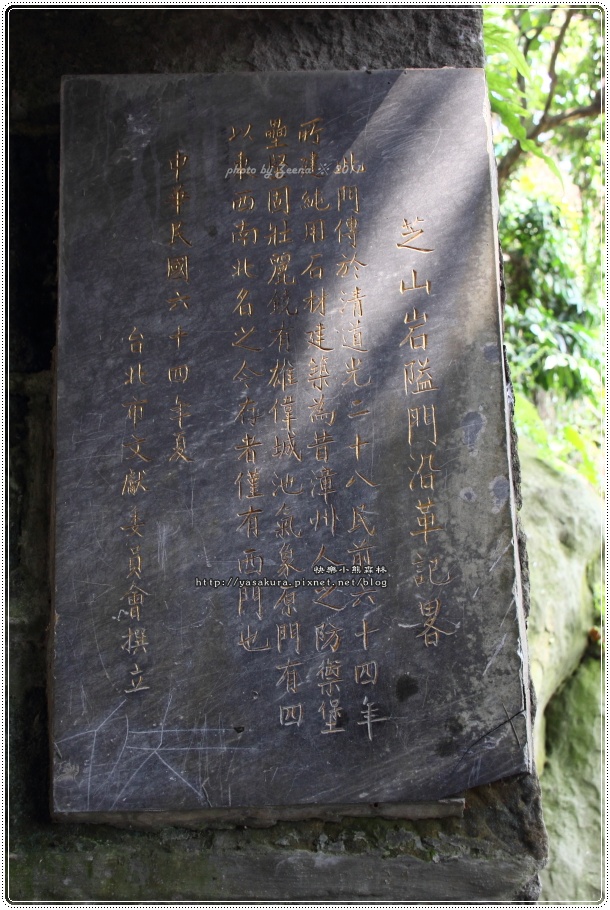 芝山岩隘門沿革記畧
此門傳於清道光二十八民前六十四年
所建純用石材建築為昔漳州人之防禦堡
壘堅固壯麗饒有雄偉城池氣象原門有四
以東西南北名之今存者僅有西門也
中華民國六十四年夏
台北市文獻委員會撰立
photo by Zeena
快樂小熊森林
http://yasakura.pixnet.net/blog